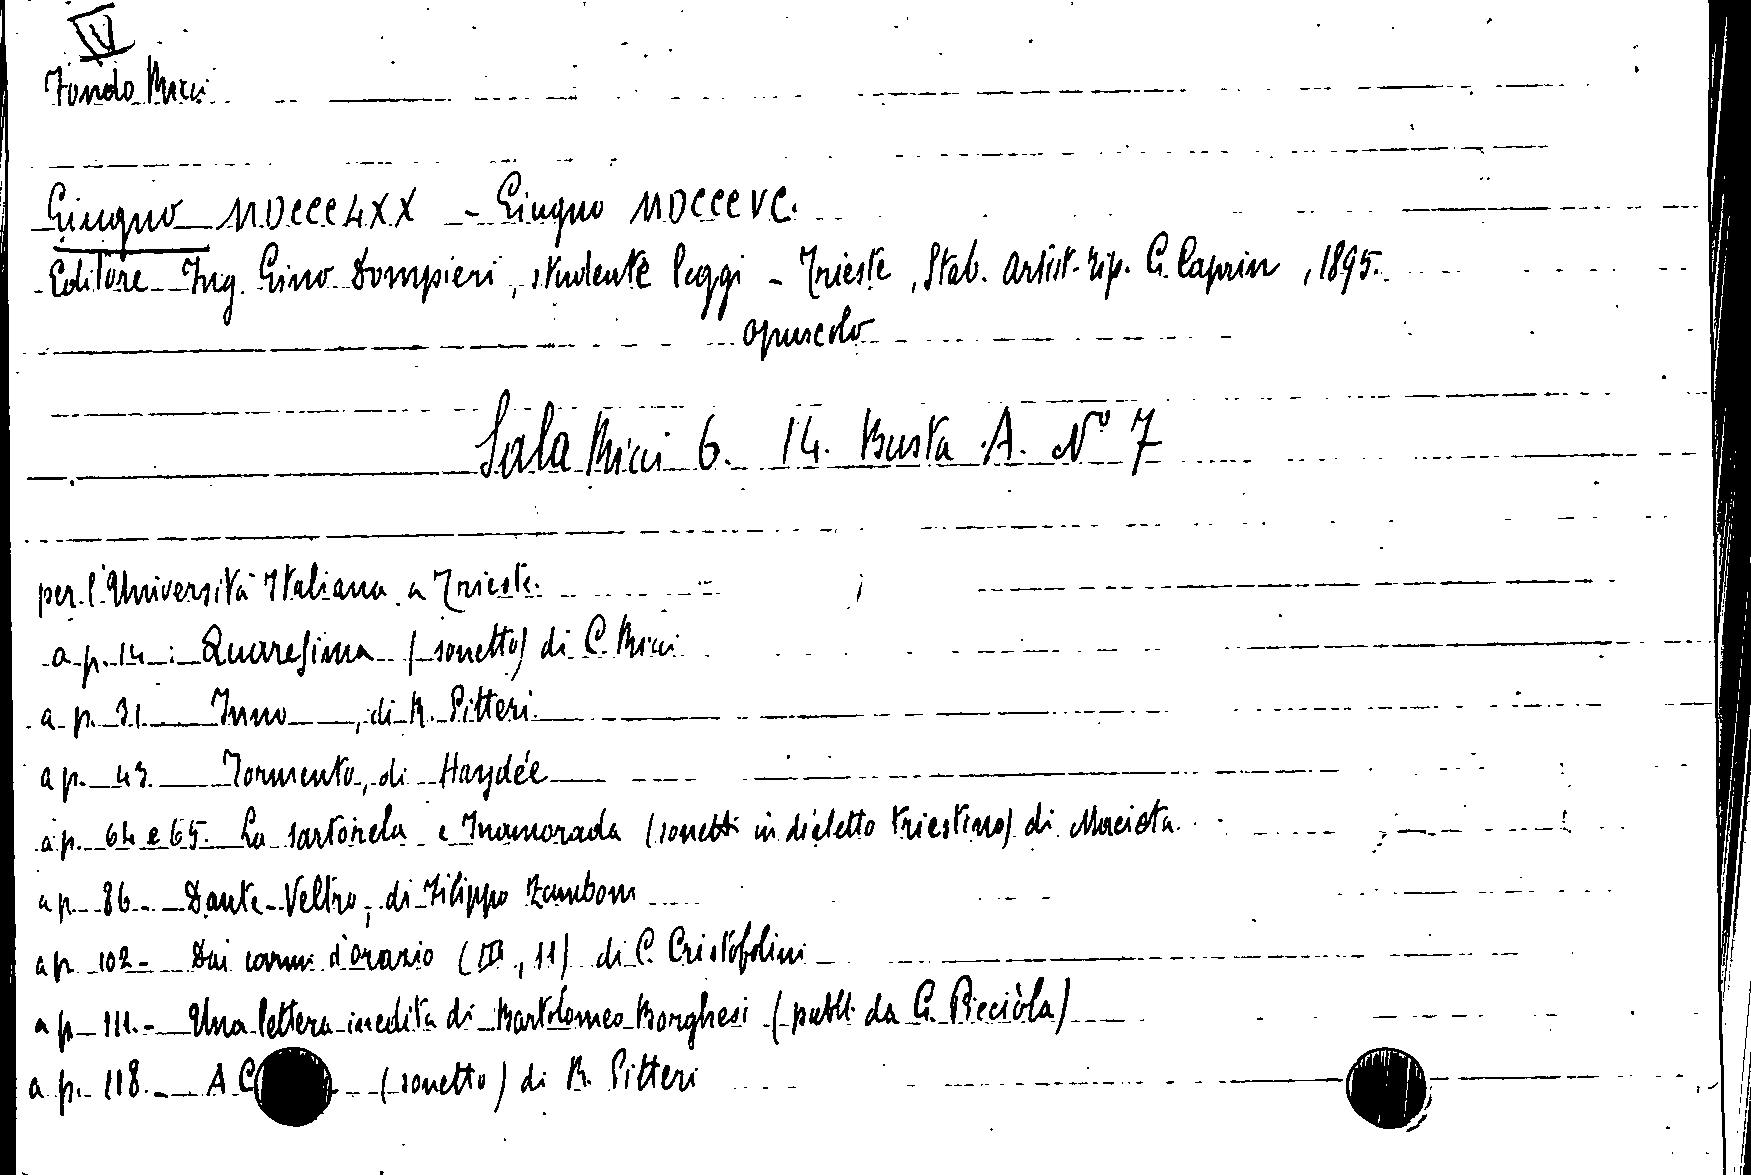 V
Fondo Ricci
Giugno MDCCCLXX - Giugno MDCCCVC.
Editore Ing. Gino Dompieri, studente leggi - Trieste, Stab. Artist. tip. G. Caprin, 1895.
opuscolo
Sala Ricci 6. 14. Busta A. N° 7
per l'Università Italiana a Trieste.
a p. 14: Quaresima (sonetto) di C. Ricci
a p. 31 Inno, di R. Pitteri.
a p. 43 Tormento, di Haydée
a p. 64 e 65. La sartorela e Inamorada (sonetti in dialetto triestino) di Macieta.
a p. 86. Dante-Veltro, di Filippo Zamboni
a p. 102 - Dai carmi d'Orazio (III, 11) di C. Cristofolini
a p. 111. - Una lettera inedita di Bartolomeo Borghesi (pubbl. da G. Picciòla)
a p. 118. - A (sonetto) di R. Pitteri